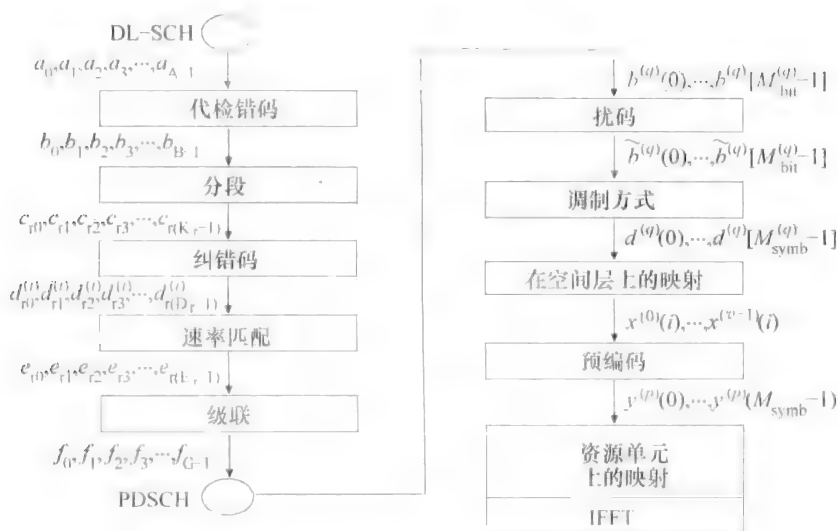 DL-SCH
a₀,a₁,a₂,a₃,…,a_A-1
代检错码
b₀,b₁,b₂,b₃,…,b_B-1
分段
c_r0,c_r1,c_r2,c_r3,…,c_r(K_r-1)
纠错码
d_r0^(i),d_r1^(i),d_r2^(i),d_r3^(i),…,d_r(D_r-1)^(i)
速率匹配
e_r0,e_r1,e_r2,e_r3,…,e_r(E_r-1)
级联
f₀,f₁,f₂,f₃,…,f_G-1
PDSCH
b^(q)(0),…,b^(q)[M_bit^(q)-1]
扰码
b̃^(q)(0),…,b̃^(q)[M_bit^(q)-1]
调制方式
d^(q)(0),…,d^(q)[M_symb^(q)-1]
在空间层上的映射
x^(0)(i),…,x^(υ-1)(i)
预编码
y^(p)(0),…,y^(p)(M_symb-1)
资源单元
上的映射
IFFT